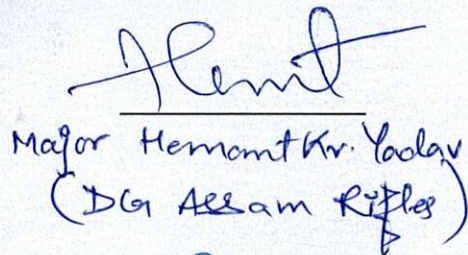 Hemant
Major Hemant Kr. Yadav
(DG Assam Rifles)